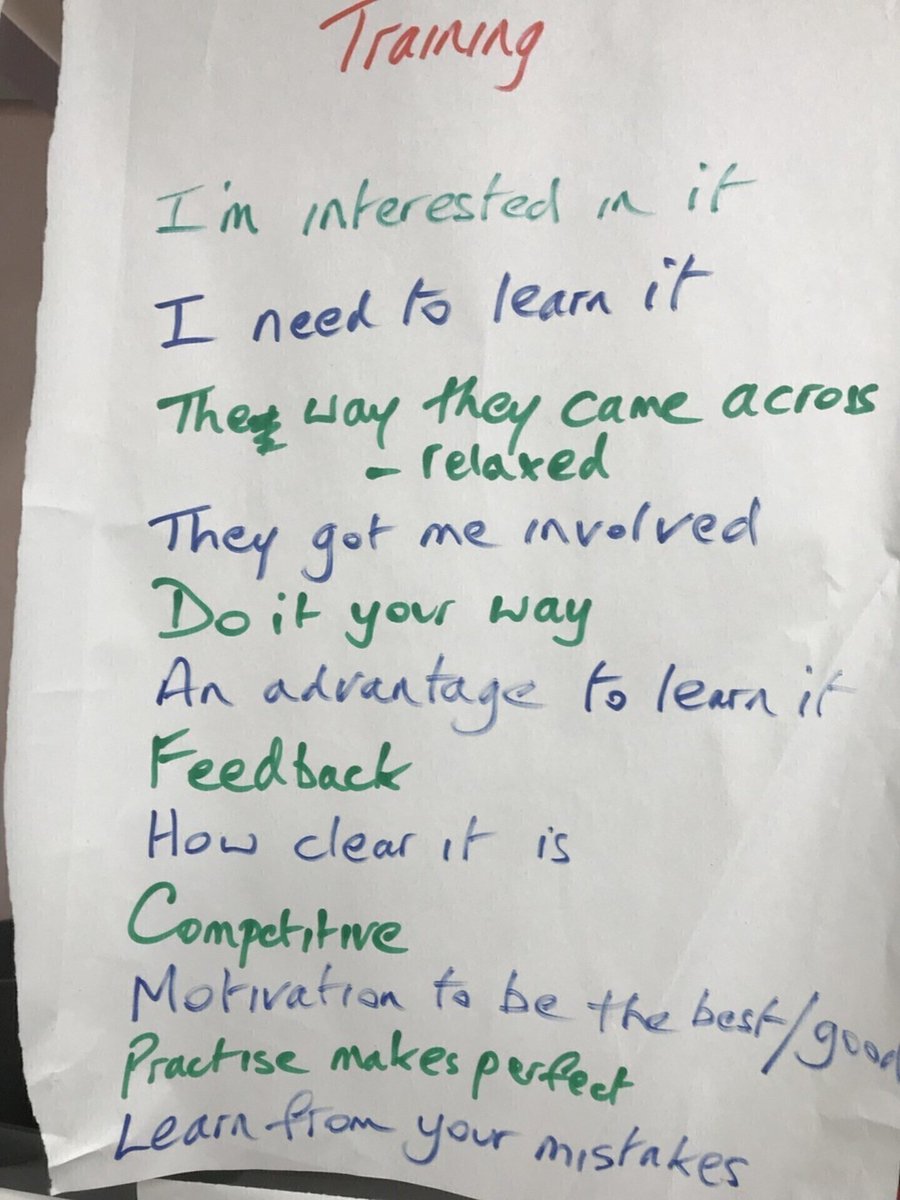 Training
I'm interested in it
I need to learn it
The way they came across
- relaxed
They got me involved
Do it your way
An advantage to learn it
Feedback
How clear it is
Competitive
Motivation to be the best/good
Practise makes perfect
Learn from your mistakes